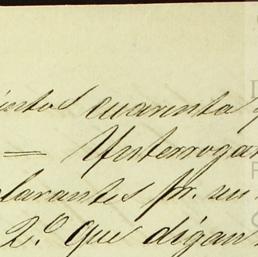 intos cuarenta y
= Ynterrogar
clarantes pr. un
2º que digan